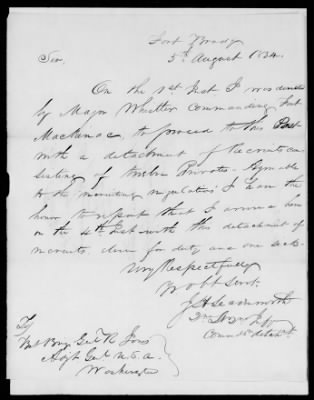 Fort Brady
5th August 1834.
Sir,
On the 1st Inst I was directed
by Major Whistler Commanding Fort
Mackinac, to proceed to this Post
with a detachment of Recruits con-
sisting of twelve Privates. Agreeable
to the recruiting regulations I have the
honor to report that I arrived here
on the 4th Inst with this detachment of
recruits, eleven for duty and one sick.
Very Respectfully
Yr obt Servt.
2nd Infy
Comdg detacht.
To
Brig. Genl R Jones
Adjt Genl U.S.A.
Washington